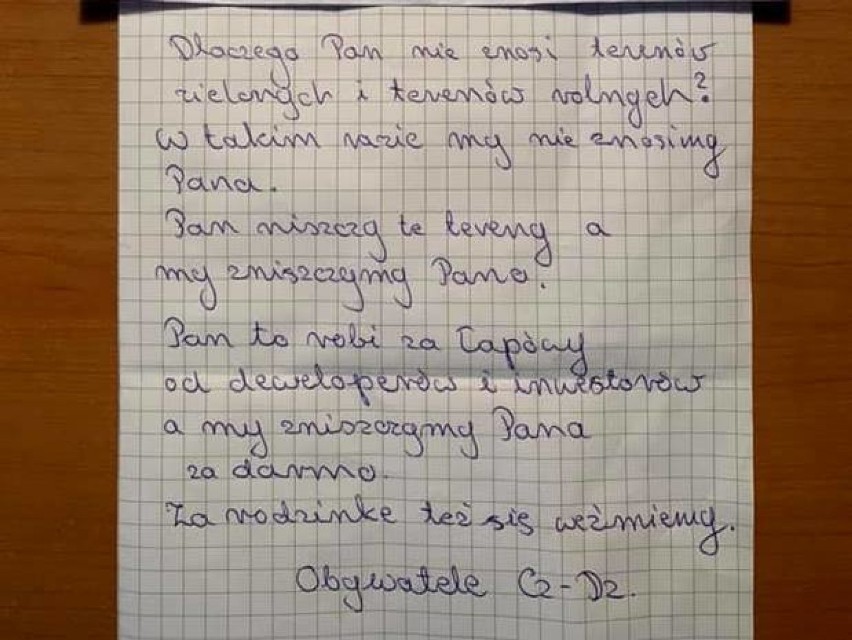 Dlaczego Pan nie znosi terenów
zielonych i terenów wolnych?
W takim razie my nie znosimy
Pana.
Pan niszczy te tereny a
my zniszczymy Pana.
Pan to robi za łapówy
od deweloperów i inwestorów
a my zniszczymy Pana
za darmo.
Za rodzinke też się weźmiemy.
Obywatele C2-D2.